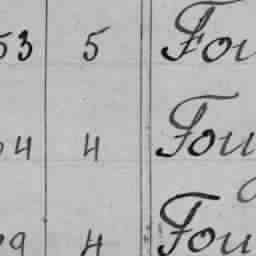 53 5 Fou
54 4 Fou
99 4 Fou